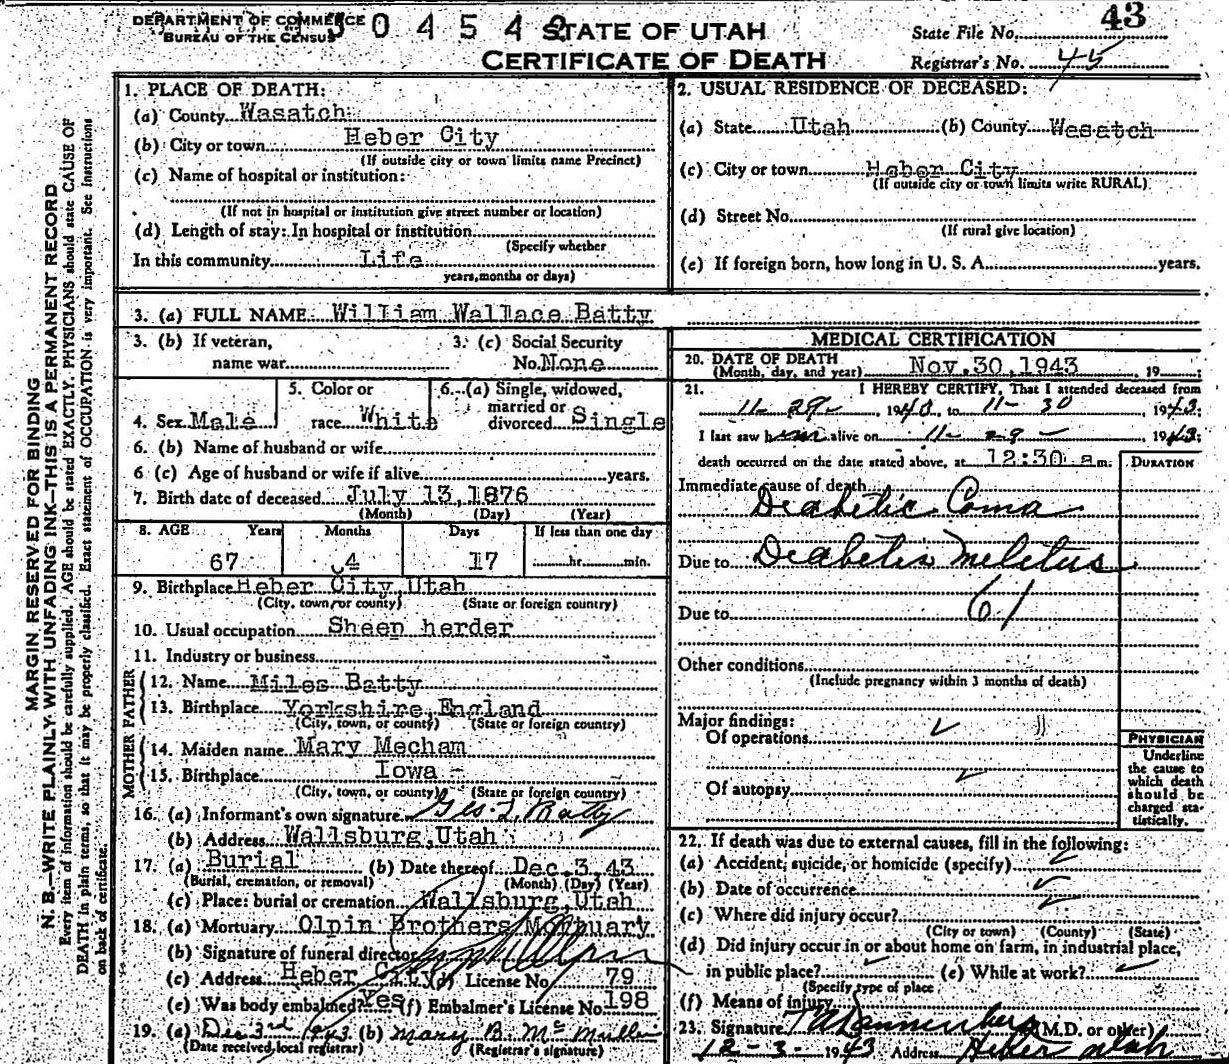 DEPARTMENT OF COMMERCE
BUREAU OF THE CENSUS
0 4 5 4
STATE OF UTAH
CERTIFICATE OF DEATH
43
State File No.
Registrar's No. 45
MARGIN RESERVED FOR BINDING
N. B.—WRITE PLAINLY WITH UNFADING INK—THIS IS A PERMANENT RECORD
Every item of information should be carefully supplied. AGE should be stated EXACTLY. PHYSICIANS should state CAUSE OF
DEATH in plain terms, so that it may be properly classified. Exact statement of OCCUPATION is very important. See Instructions
on back of certificate.
1. PLACE OF DEATH:
(a) County Wasatch
(b) City or town Heber City
(If outside city or town limits name Precinct)
(c) Name of hospital or institution:
(If not in hospital or institution give street number or location)
(d) Length of stay: In hospital or institution
(Specify whether
In this community Life
years, months or days)
2. USUAL RESIDENCE OF DECEASED:
(a) State Utah (b) County Wasatch
(c) City or town Heber City
(If outside city or town limits write RURAL)
(d) Street No.
(If rural give location)
(e) If foreign born, how long in U. S. A. years.
3. (a) FULL NAME William Wallace Batty
3. (b) If veteran, name war
3. (c) Social Security No. None
4. Sex Male
5. Color or race White
6. (a) Single, widowed, married or divorced Single
6. (b) Name of husband or wife
6 (c) Age of husband or wife if alive years.
7. Birth date of deceased July 13, 1876
(Month) (Day) (Year)
8. AGE Years Months Days If less than one day
67 4 17 hr. min.
9. Birthplace Heber City, Utah
(City, town, or county) (State or foreign country)
10. Usual occupation Sheep herder
11. Industry or business
FATHER
12. Name Miles Batty
13. Birthplace Yorkshire, England
(City, town, or county) (State or foreign country)
MOTHER
14. Maiden name Mary Mecham
15. Birthplace Iowa -
(City, town, or county) (State or foreign country)
16. (a) Informant's own signature Geo L. Batty
(b) Address Wallsburg, Utah
17. (a) Burial (b) Date thereof Dec. 3, 43
(Burial, cremation, or removal) (Month) (Day) (Year)
(c) Place: burial or cremation Wallsburg, Utah
18. (a) Mortuary Olpin Brothers Mortuary
(b) Signature of funeral director
(c) Address Heber City (d) License No. 79
(e) Was body embalmed? Yes (f) Embalmer's License No. 198
19. (a) Dec 3rd 1943 (b) Mary B. McMullin
(Date received local registrar) (Registrar's signature)
MEDICAL CERTIFICATION
20. DATE OF DEATH Nov. 30, 1943, 19
(Month, day, and year)
21. I HEREBY CERTIFY, That I attended deceased from
11- 29-, 1940, to 11- 30 1943;
I last saw him alive on 11- 29 -, 1943;
death occurred on the date stated above, at 12:30 a m.
DURATION
Immediate cause of death
Diabetic Coma
Due to Diabetis Melitus
61
Due to
Other conditions
(Include pregnancy within 3 months of death)
Major findings:
Of operations
Of autopsy
PHYSICIAN
Underline
the cause to
which death
should be
charged sta-
tistically.
22. If death was due to external causes, fill in the following:
(a) Accident, suicide, or homicide (specify)
(b) Date of occurrence
(c) Where did injury occur?
(City or town) (County) (State)
(d) Did injury occur in or about home on farm, in industrial place,
in public place? (e) While at work?
(Specify type of place
(f) Means of injury
23. Signature (M.D. or other)
12-3-1943 Address Heber Utah